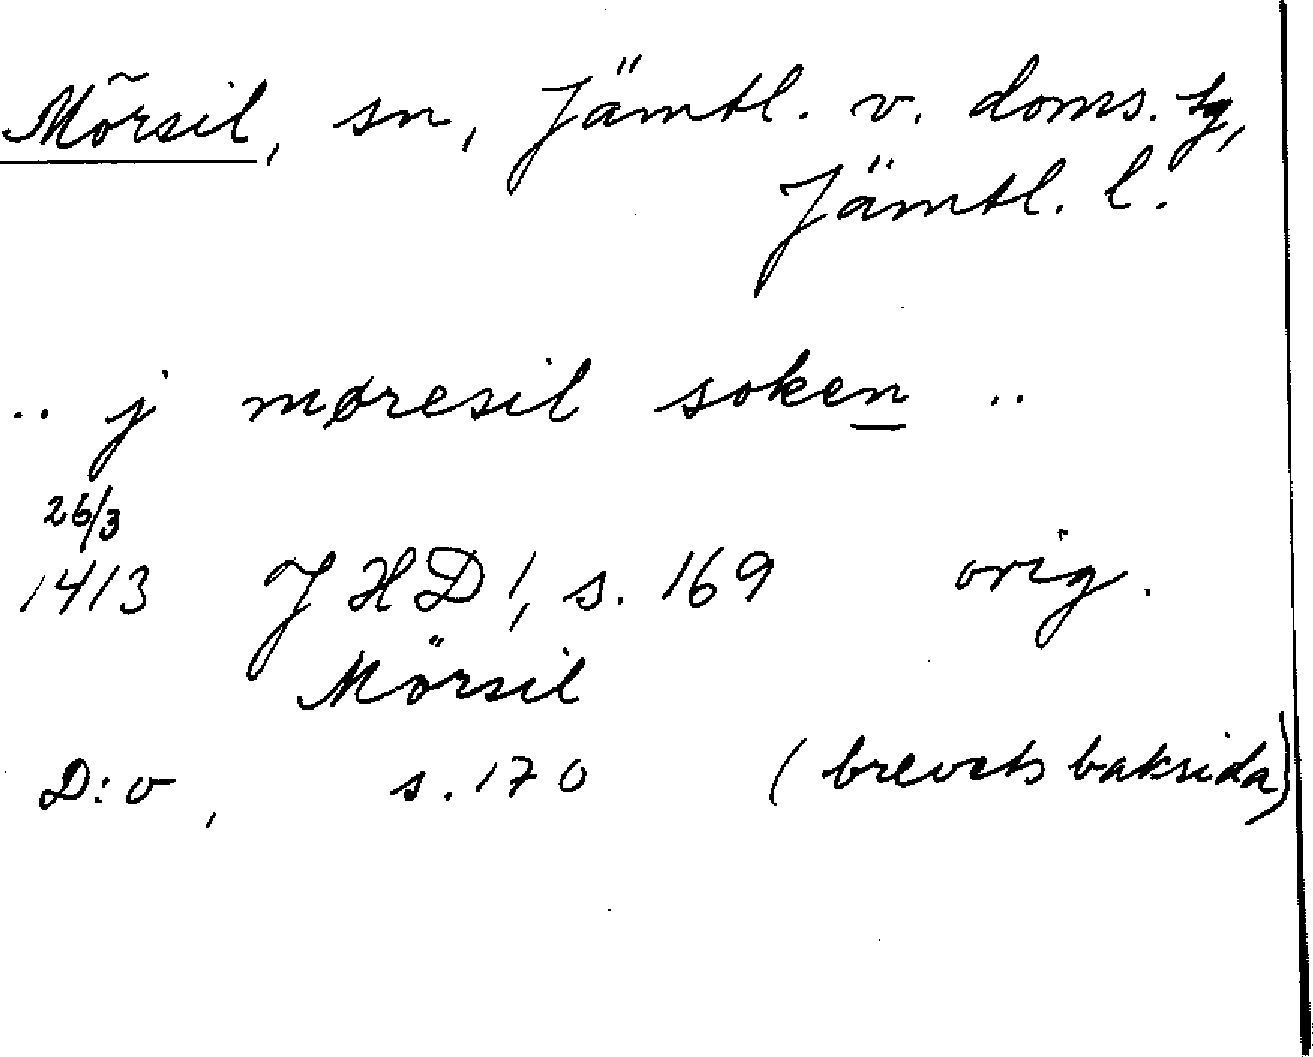 Mörsil, sn, Jämtl. v. doms. sg,
Jämtl. l.
.. j møresil soken ..
26/3
1413 JHD 1, s. 169 orig.
Mörsil
D:o, s. 170 (brevets baksida)